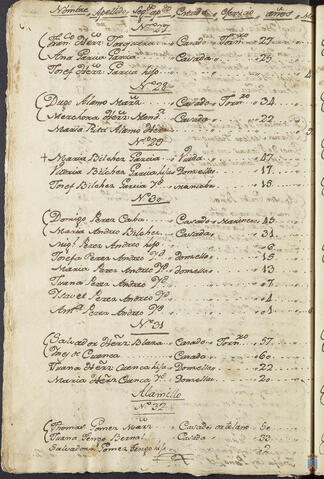 Nombre Apellido Casado Oficio años
Fran.co Hern.z Casado Jorn.ro 27
Ana Garcia Garcia Casada 25
Josef Hern.z Garcia hijo
N.o 28
Diego Alamo Mart.z Casado Jorn.ro 34
Casada 22
Maria Rita Alamo Hern.z
N.o 29
+ Maria Bilches Garcia Viuda 47
Vitoria Bilches Garcia hija Donzella 17
Josef Bilches Garcia Y.o Mancebo 15
N.o 30
Domingo Perez Casado 45
Maria Andreo Bilches Casada 31
Mig.l Perez Andreo hijo 6
Josefa Perez Andreo Y.d Donzella 15
Maria Perez Andreo Y.d Donzella 13
Juana Perez Andreo Y.d 7
Perez Andreo Y.d 4
Ant.a Perez Andreo Y.d
N.o 31
Salvador Hern.z Casado Jorn.ro 57
Ynes de Cuenca Casada 60
Juana Hern.z Cuenca hija Donzella 22
Maria Hern.z Cuenca Y.d Donzella 20
Alamillo
N.o 32
Thomas Gomez Casado ortelano 50
Juana Bernal Casada
Salvadora Gomez hija